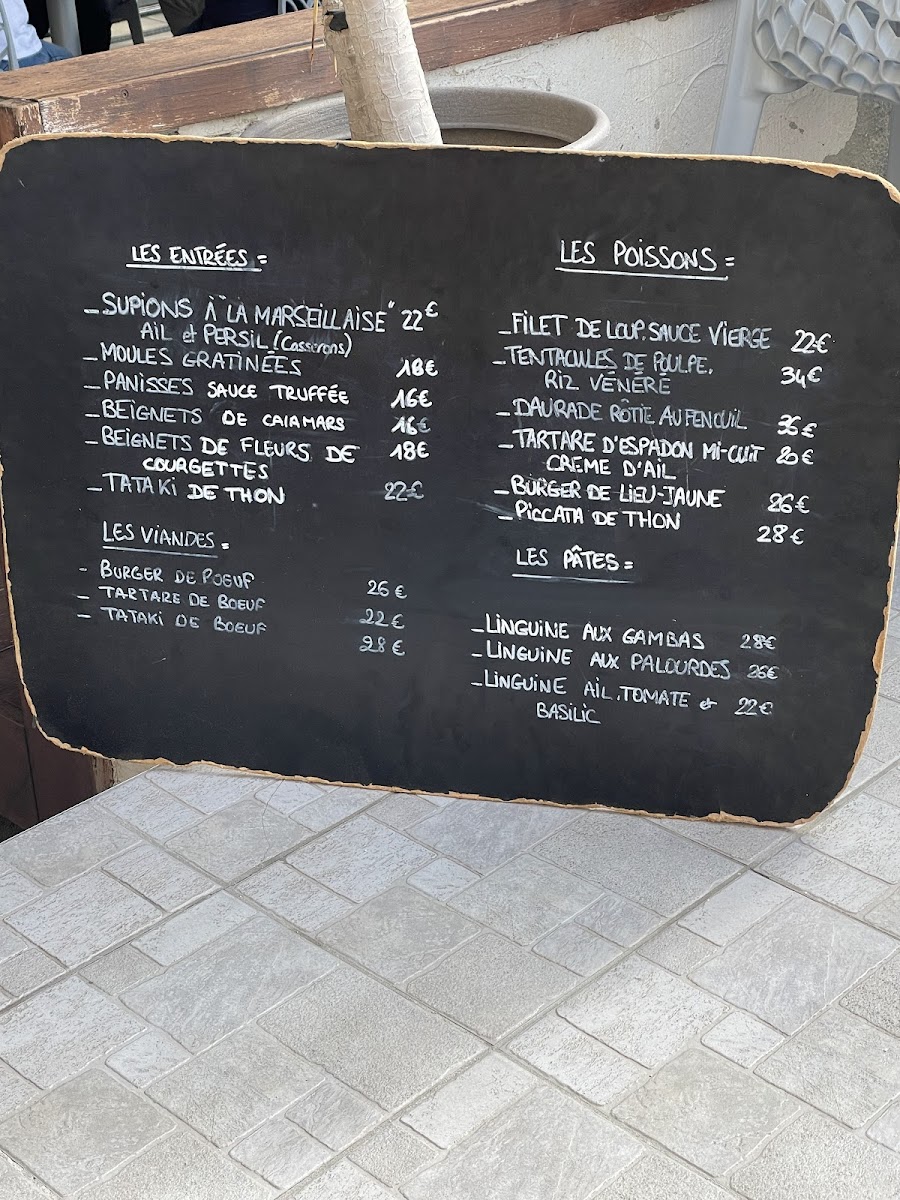 LES ENTRÉES =
_SUPIONS À "LA MARSEILLAISE" 22€
AIL et PERSIL (Casserons)
_MOULES GRATINÉES 18€
_PANISSES SAUCE TRUFFÉE 16€
_BEIGNETS DE CALAMARS 16€
_BEIGNETS DE FLEURS DE 18€
COURGETTES
_TATAKI DE THON 22€
LES VIANDES =
- BURGER DE BOEUF 26€
- TARTARE DE BOEUF 22€
- TATAKI DE BOEUF 28€
LES POISSONS =
_FILET DE LOUP, SAUCE VIERGE 22€
_TENTACULES DE POULPE, 34€
RIZ VÉNÉRÉ
_DAURADE RÔTIE AU FENOUIL
_TARTARE D'ESPADON MI-CUIT
CREME D'AIL
_BURGER DE LIEU-JAUNE 26€
_PICCATA DE THON 28€
LES PÂTES =
_LINGUINE AUX GAMBAS 28€
_LINGUINE AUX PALOURDES 26€
_LINGUINE AIL, TOMATE et 22€
BASILIC